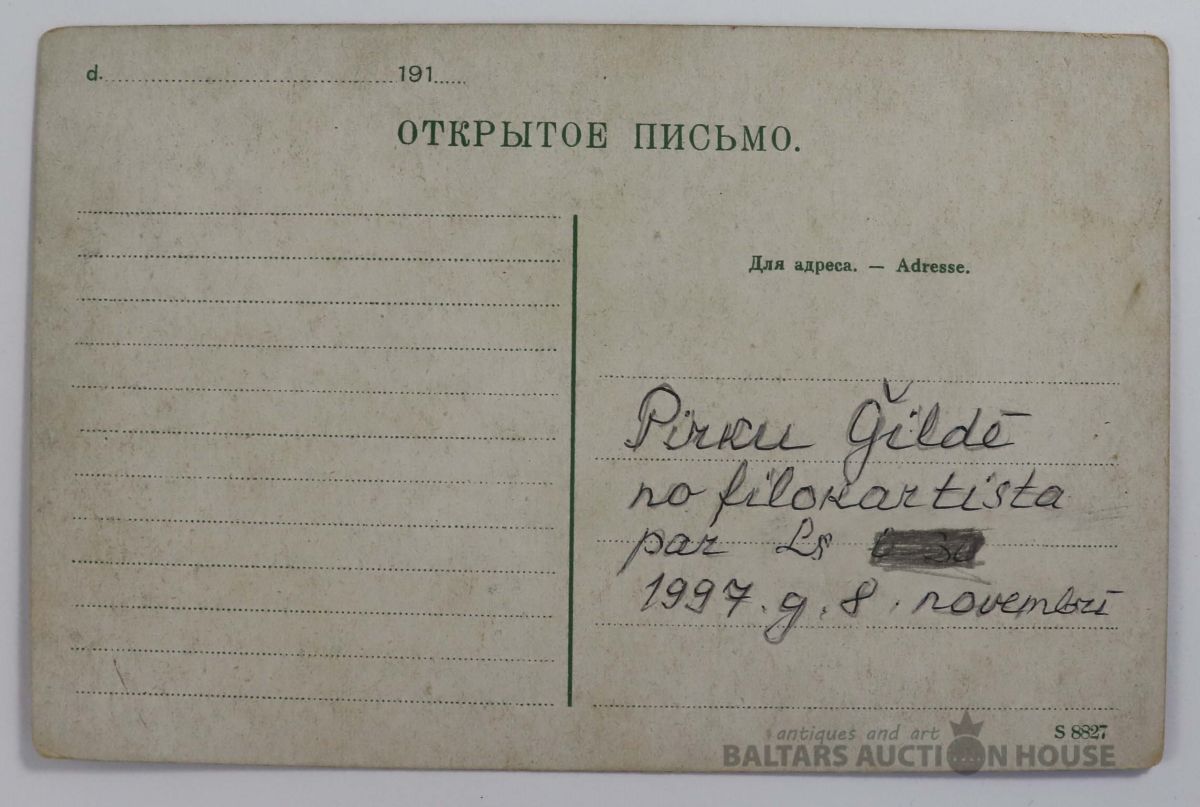 d. 191
ОТКРЫТОЕ ПИСЬМО.
Для адреса. — Adresse.
Pirku Ģildē
no filokartista
par Ls
1997. g. 8. novembrī
S 8827
antiques and art
BALTARS AUCTION HOUSE